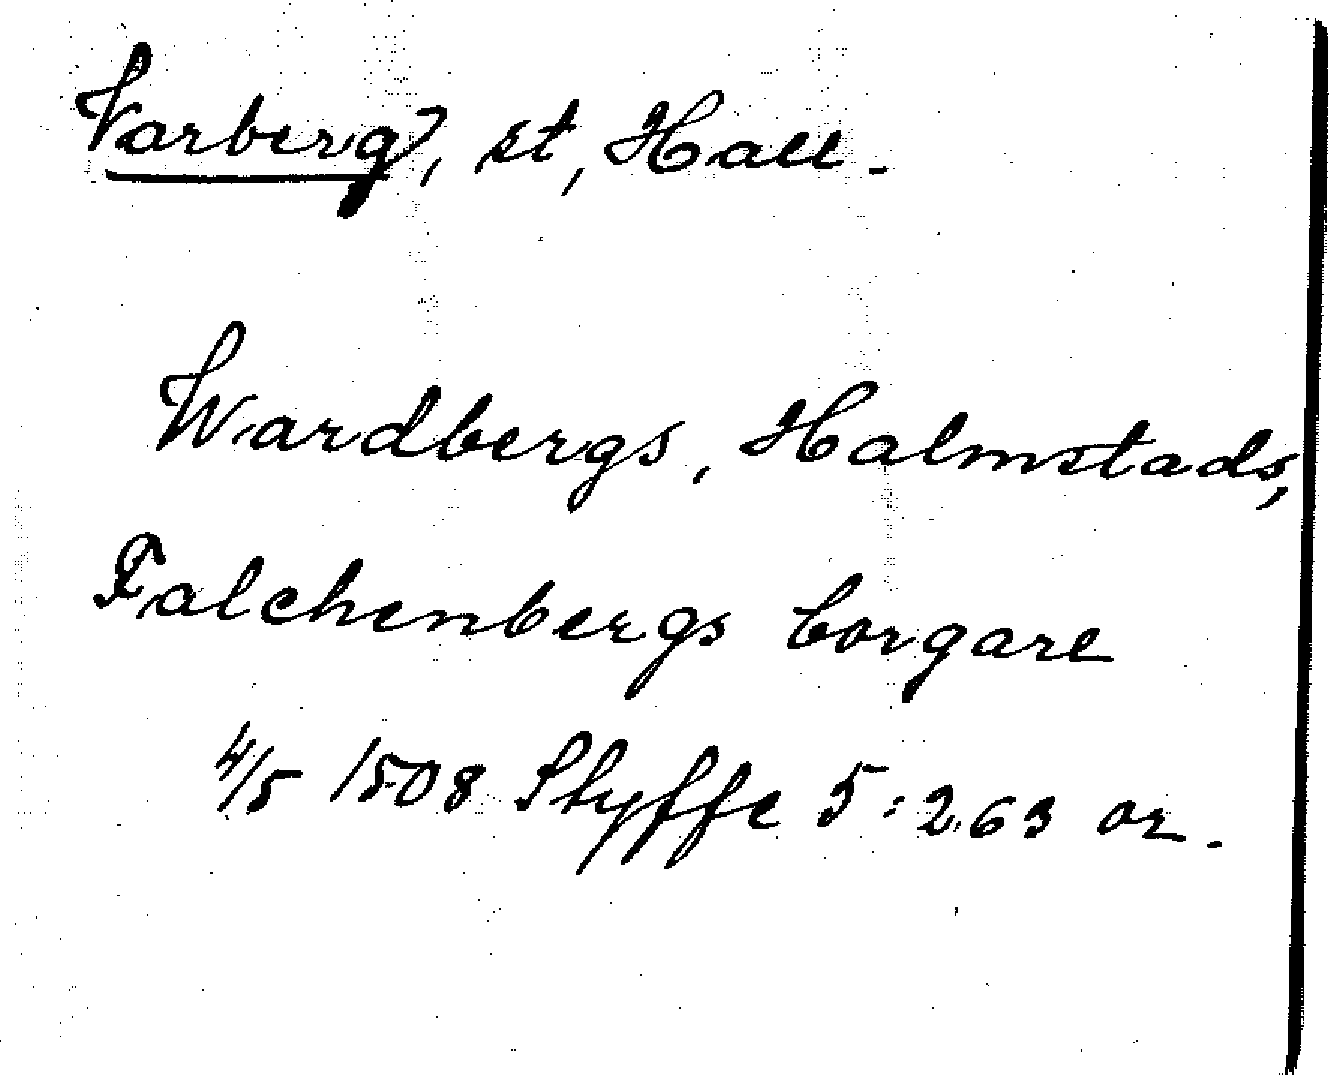 Varberg, st, Hall.
Wardbergs, Halmstads,
Falchenbergs borgare
4/5 1508 Styffe 5:263 or.